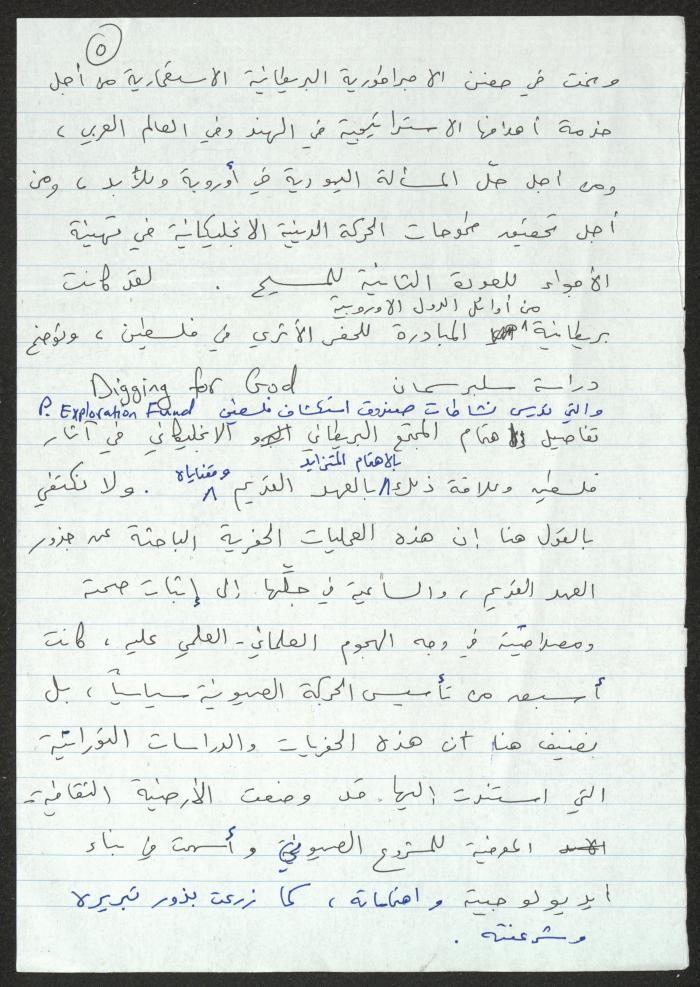 ٥
ونمت في حضن الامبراطورية البريطانية الاستعمارية من أجل
خدمة أهدافها الاستراتيجية في الهند وفي العالم العربي ،
ومن اجل حلّ المسألة اليهودية في أوروبة وللأبد ، ومن
أجل تحقيق طموحات الحركة الدينية الانجليكانية في تهيئة
الأجواء للعودة الثانية للمسيح . لقد كانت
من أوائل الدول الاوروبية
بريطانية المبادرة للحفر الأثري في فلسطين ، وتوضح
دراسة سلبرسمان Digging for God
والتي تدرس نشاطات صندوق استكشاف فلسطين P. Exploration Fund
تفاصيل اهتمام المجتمع البريطاني الانجليكاني في آثار
بالاهتمام المتزايد
فلسطين وعلاقة ذلك بالعهد القديم وقضاياه . ولا نكتفي
بالقول هنا إن هذه العمليات الحفرية الباحثة عن جذور
العهد القديم ، والساعية في جلّها إلى إثبات صحته
ومصداقيّته في وجه الهجوم العلماني - العلمي عليه ، كانت
أسبق من تأسيس الحركة الصهيونية سياسياً ، بل
نضيف هنا أن هذه الحفريات والدراسات التوراتيّة
التي استندت إليها قد وضعت الأرضية الثقافية -
المعرفية للمشروع الصهيوني وأسهمت في بناء
ايديولوجيته واهتماماته ، كما زرعت بذور تبريره
وشرعنته .